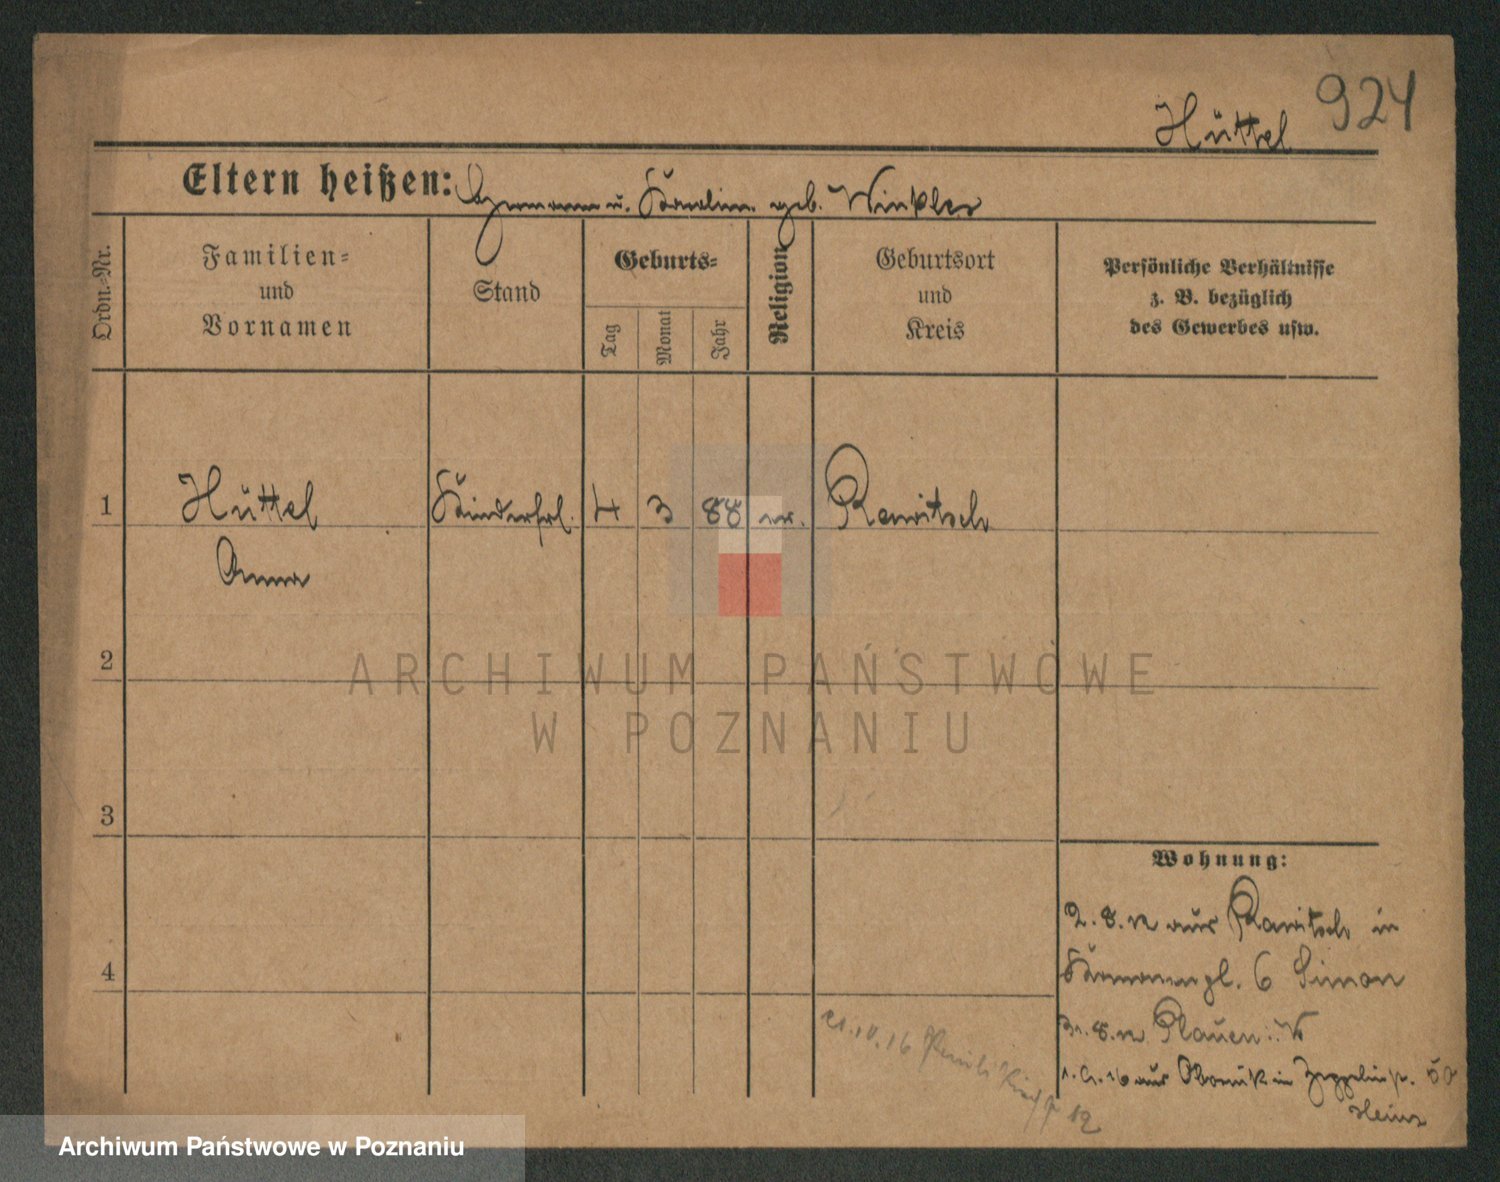 924
Hüttel
Eltern heißen: Hermann u. Karolin. geb. Winkler
Ordn.=Nr.
Familien=
und
Vornamen
Stand
Geburts=
Tag
Monat
Jahr
Religion
Geburtsort
und
Kreis
Persönliche Verhältnisse
z. B. bezüglich
des Gewerbes usw.
1 Hüttel Kinderfrl. 4 3 88 ev. Rawitsch
Anna
2
ARCHIWUM PAŃSTWOWE
W POZNANIU
3
Wohnung:
2. 8. 12 aus Rawitsch in
4
6 Simon
31. 8. 12 Plauen i. V
21. 10. 16
1. 9. 16 aus Obornik in Zeppelinstr. 50
12
Heinz
Archiwum Państwowe w Poznaniu